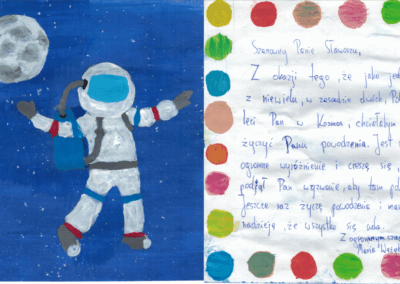 Szanowny Panie Sławoszu,
Z okazji tego, że jako jed
z niewielu, w zasadzie dwóch, Pol
leci Pan w Kosmos, chciałabym
życzyć Panu powodzenia. Jest
ogromne wyróżnienie i cieszę się,
podjął Pan wyzwanie, aby tam
jeszcze raz życzę powodzenia i mam
nadzieję, że wszystko się uda.
Z ogromnym
Maria